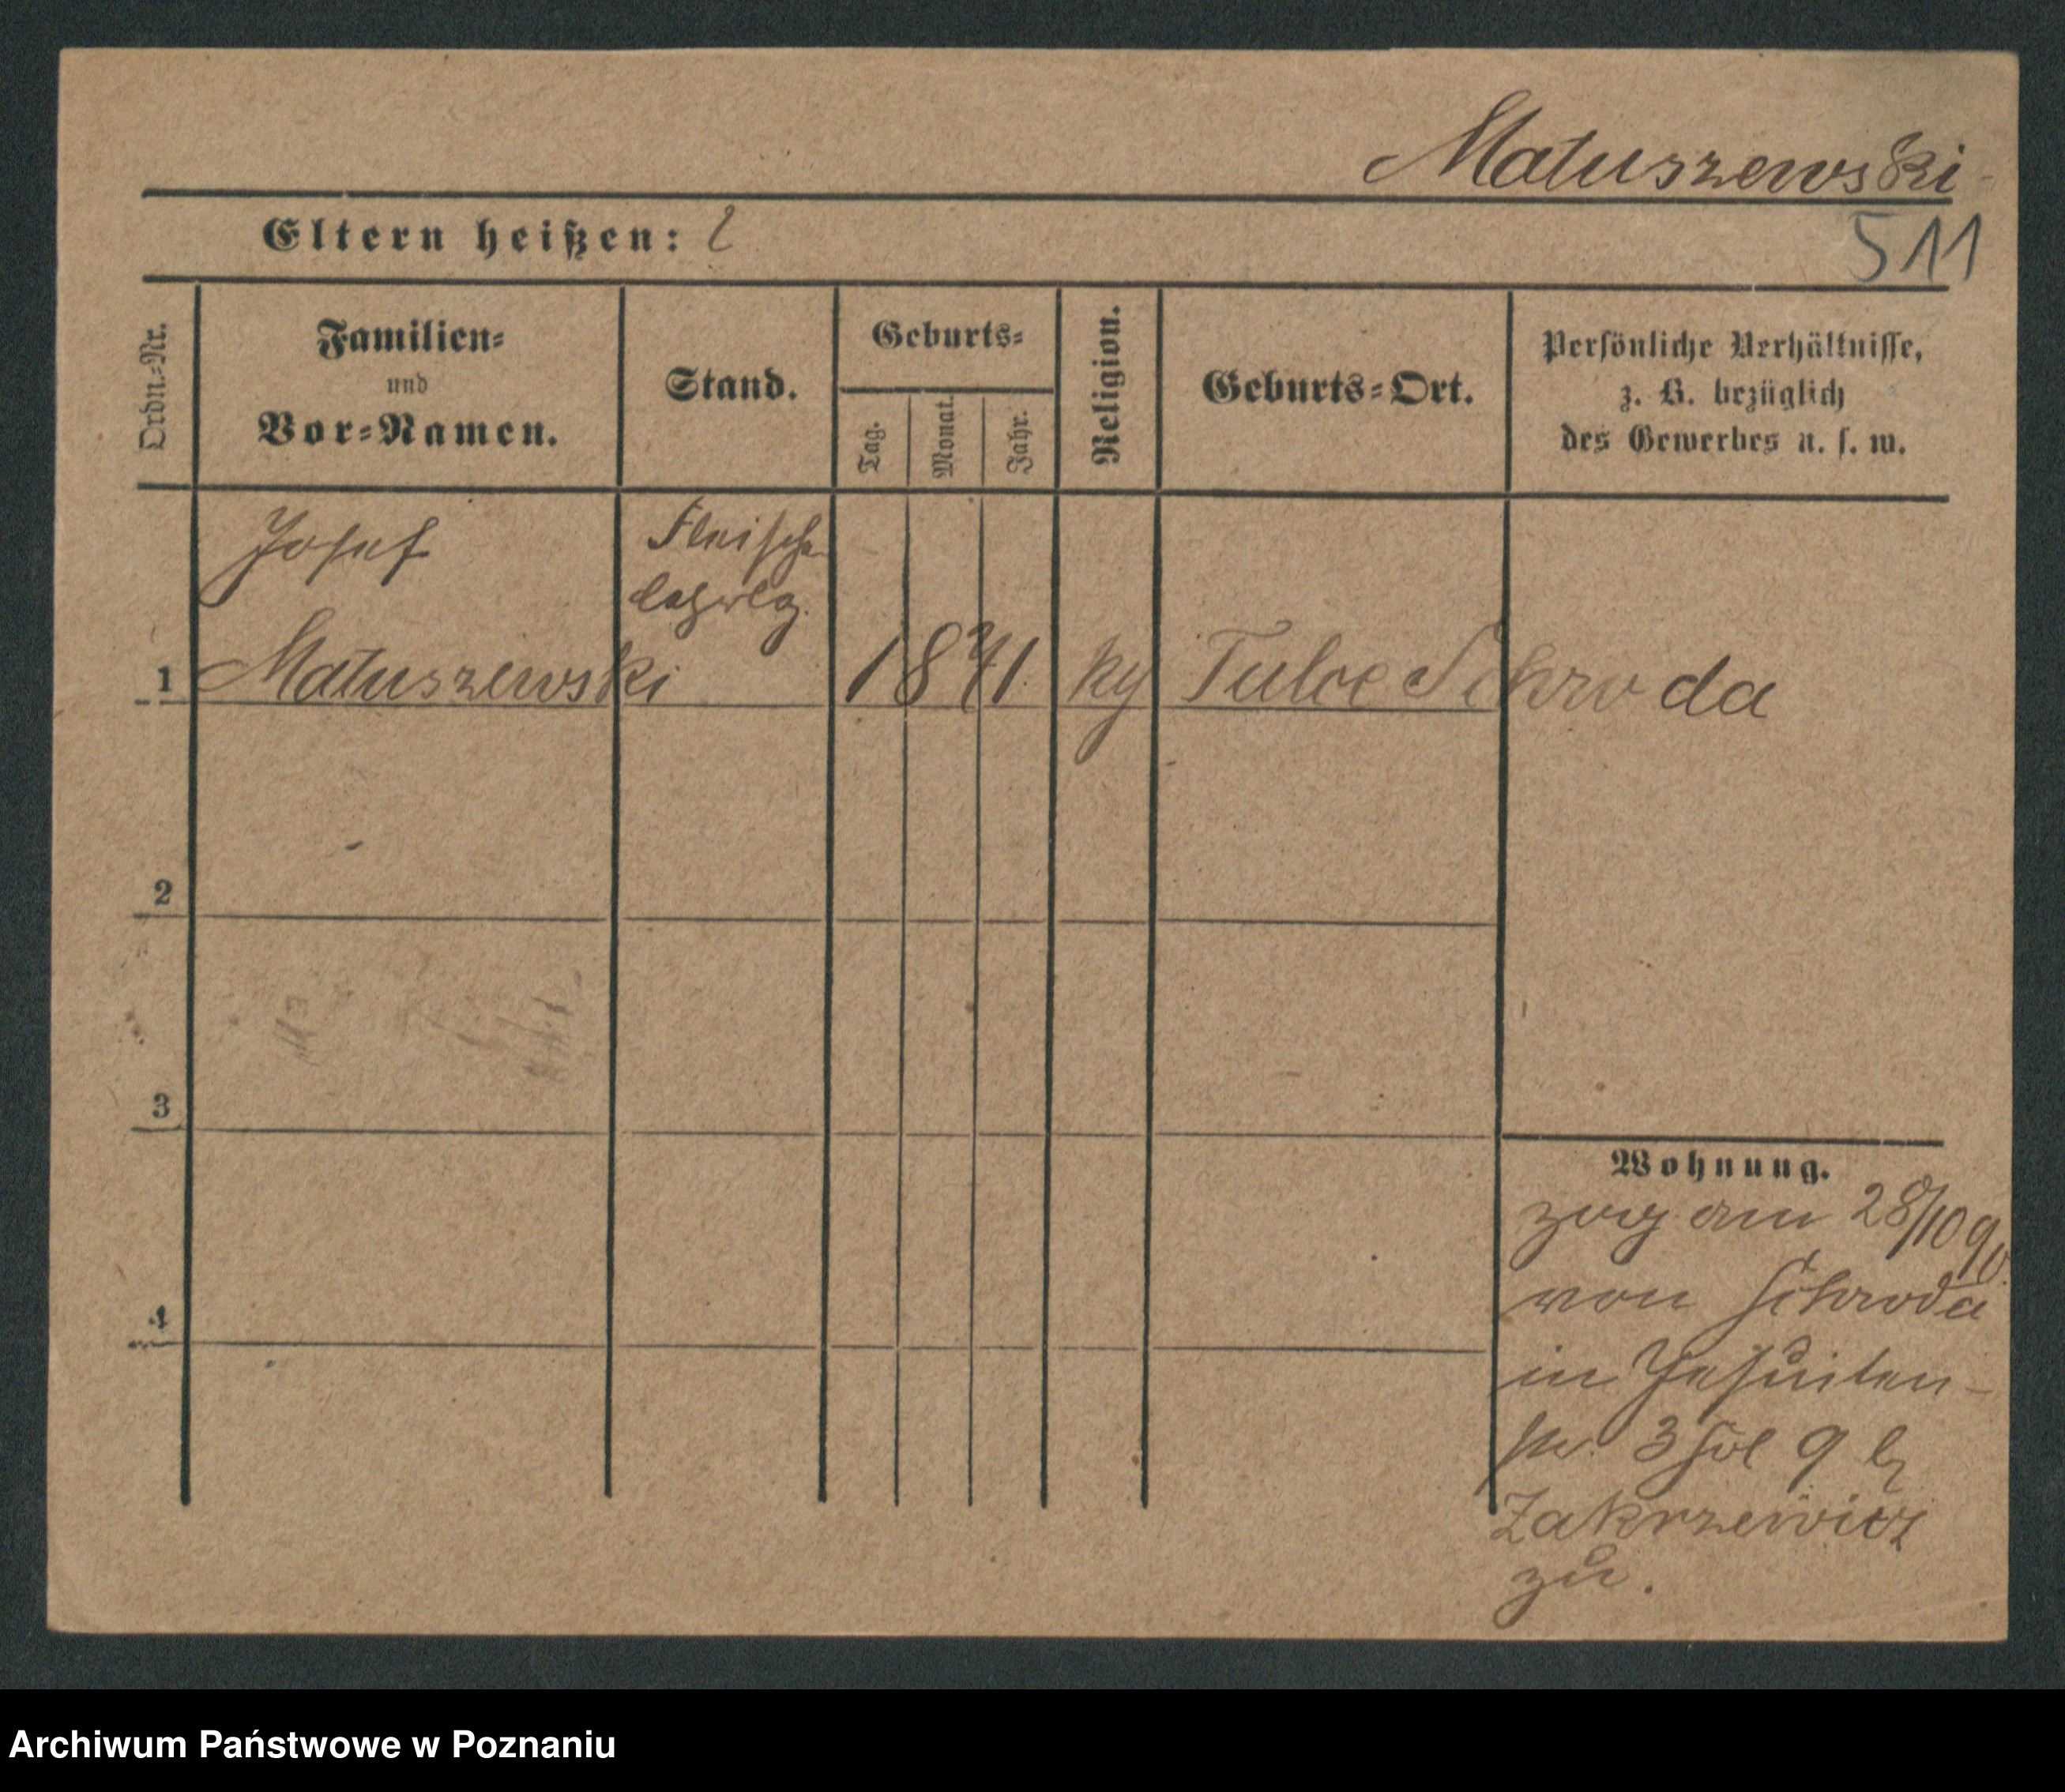 Matuszewski
Eltern heißen:
511
Ordn.-Nr.
Familien-
und
Vor-Namen.
Stand.
Geburts-
Tag.
Monat.
Jahr.
Religion.
Geburts-Ort.
Persönliche Verhältnisse,
z. B. bezüglich
des Gewerbes u. s. w.
Josef
Fleischer
1
Matuszewski
1871.
Tulce Schroda
2
3
4
Wohnung.
zog am 28/10 90.
von Schroda
in Jesuiten-
str. 3 9
Zakrzewicz
zu.
Archiwum Państwowe w Poznaniu